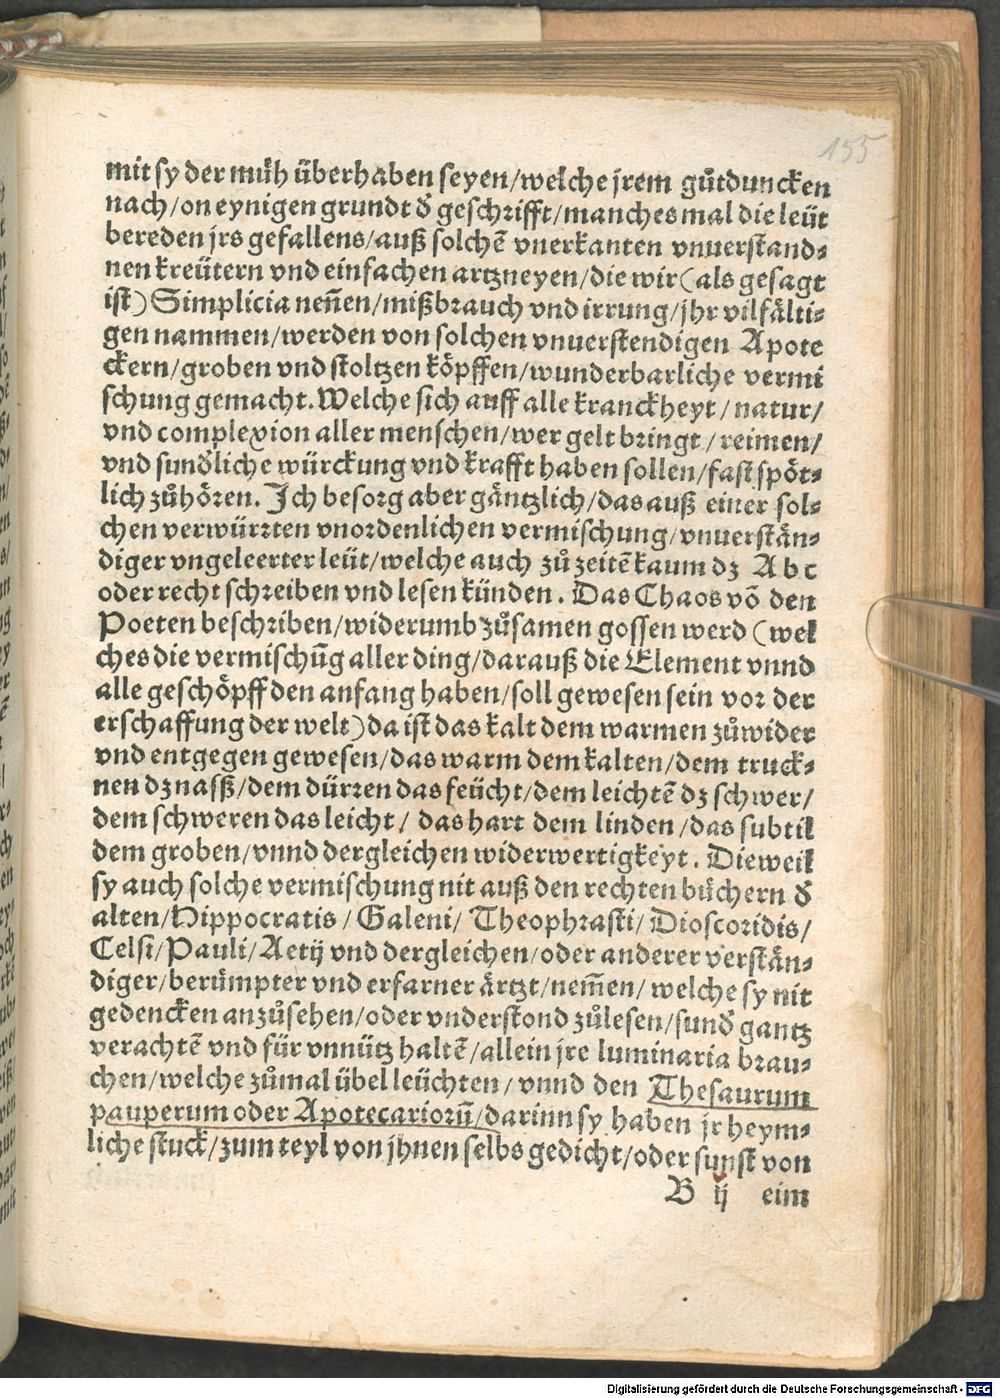 155
mit sy der müh überhaben seyen/welche jrem gůtduncken
nach/on eynigen grundt ð geschrifft/manches mal die leüt
bereden jrs gefallens/auß solchẽ vnerkanten vnuerstand⸗
nen kreütern vnd einfachen artzneyen/die wir (als gesagt
ist) Simplicia neñen/mißbrauch vnd irrung/jhr vilfälti⸗
gen nammen/werden von solchen vnuerstendigen Apote
ckern/groben vnd stoltzen köpffen/wunderbarliche vermi
schung gemacht. Welche sich auff alle kranckheyt/natur/
vnd complexion aller menschen/wer gelt bringt/reimen/
vnd sunðliche würckung vnd krafft haben sollen/fast spöt⸗
lich zůhören. Ich besorg aber gäntzlich/das auß einer sol⸗
chen verwürzten vnordenlichen vermischung/vnuerstän⸗
diger vngeleerter leüt/welche auch zů zeitẽ kaum dz Abc
oder recht schreiben vnd lesen künden. Das Chaos võ den
Poeten beschriben/widerumb zůsamen gossen werd (wel
ches die vermischũg aller ding/darauß die Element vnnd
alle geschöpff den anfang haben/soll gewesen sein vor der
erschaffung der welt) da ist das kalt dem warmen zůwider
vnd entgegen gewesen/das warm dem kalten/dem truck⸗
nen dz nasß/dem dürren das feücht/dem leichtẽ dz schwer/
dem schweren das leicht/ das hart dem linden/das subtil
dem groben/vnnd dergleichen widerwertigkeyt. Dieweil
sy auch solche vermischung nit auß den rechten büchern ð
alten/Hippocratis/Galeni/Theophrasti/Dioscoridis/
Celsi/Pauli/Aetij vnd dergleichen/oder anderer verstän⸗
diger/berümpter vnd erfarner ärtzt/nem̃en/welche sy nit
gedencken anzůsehen/oder vnderstond zůlesen/sunð gantz
verachtẽ vnd für vnnütz haltẽ/allein jre luminaria brau⸗
chen/welche zůmal übel leüchten/vnnd den Thesaurum
pauperum oder Apotecarioru̅/darinn sy haben jr heym⸗
liche stuck/zum teyl von jhnen selbs gedicht/oder sunst von
B ij eim
Digitalisierung gefördert durch die Deutsche Forschungsgemeinschaft - DFG